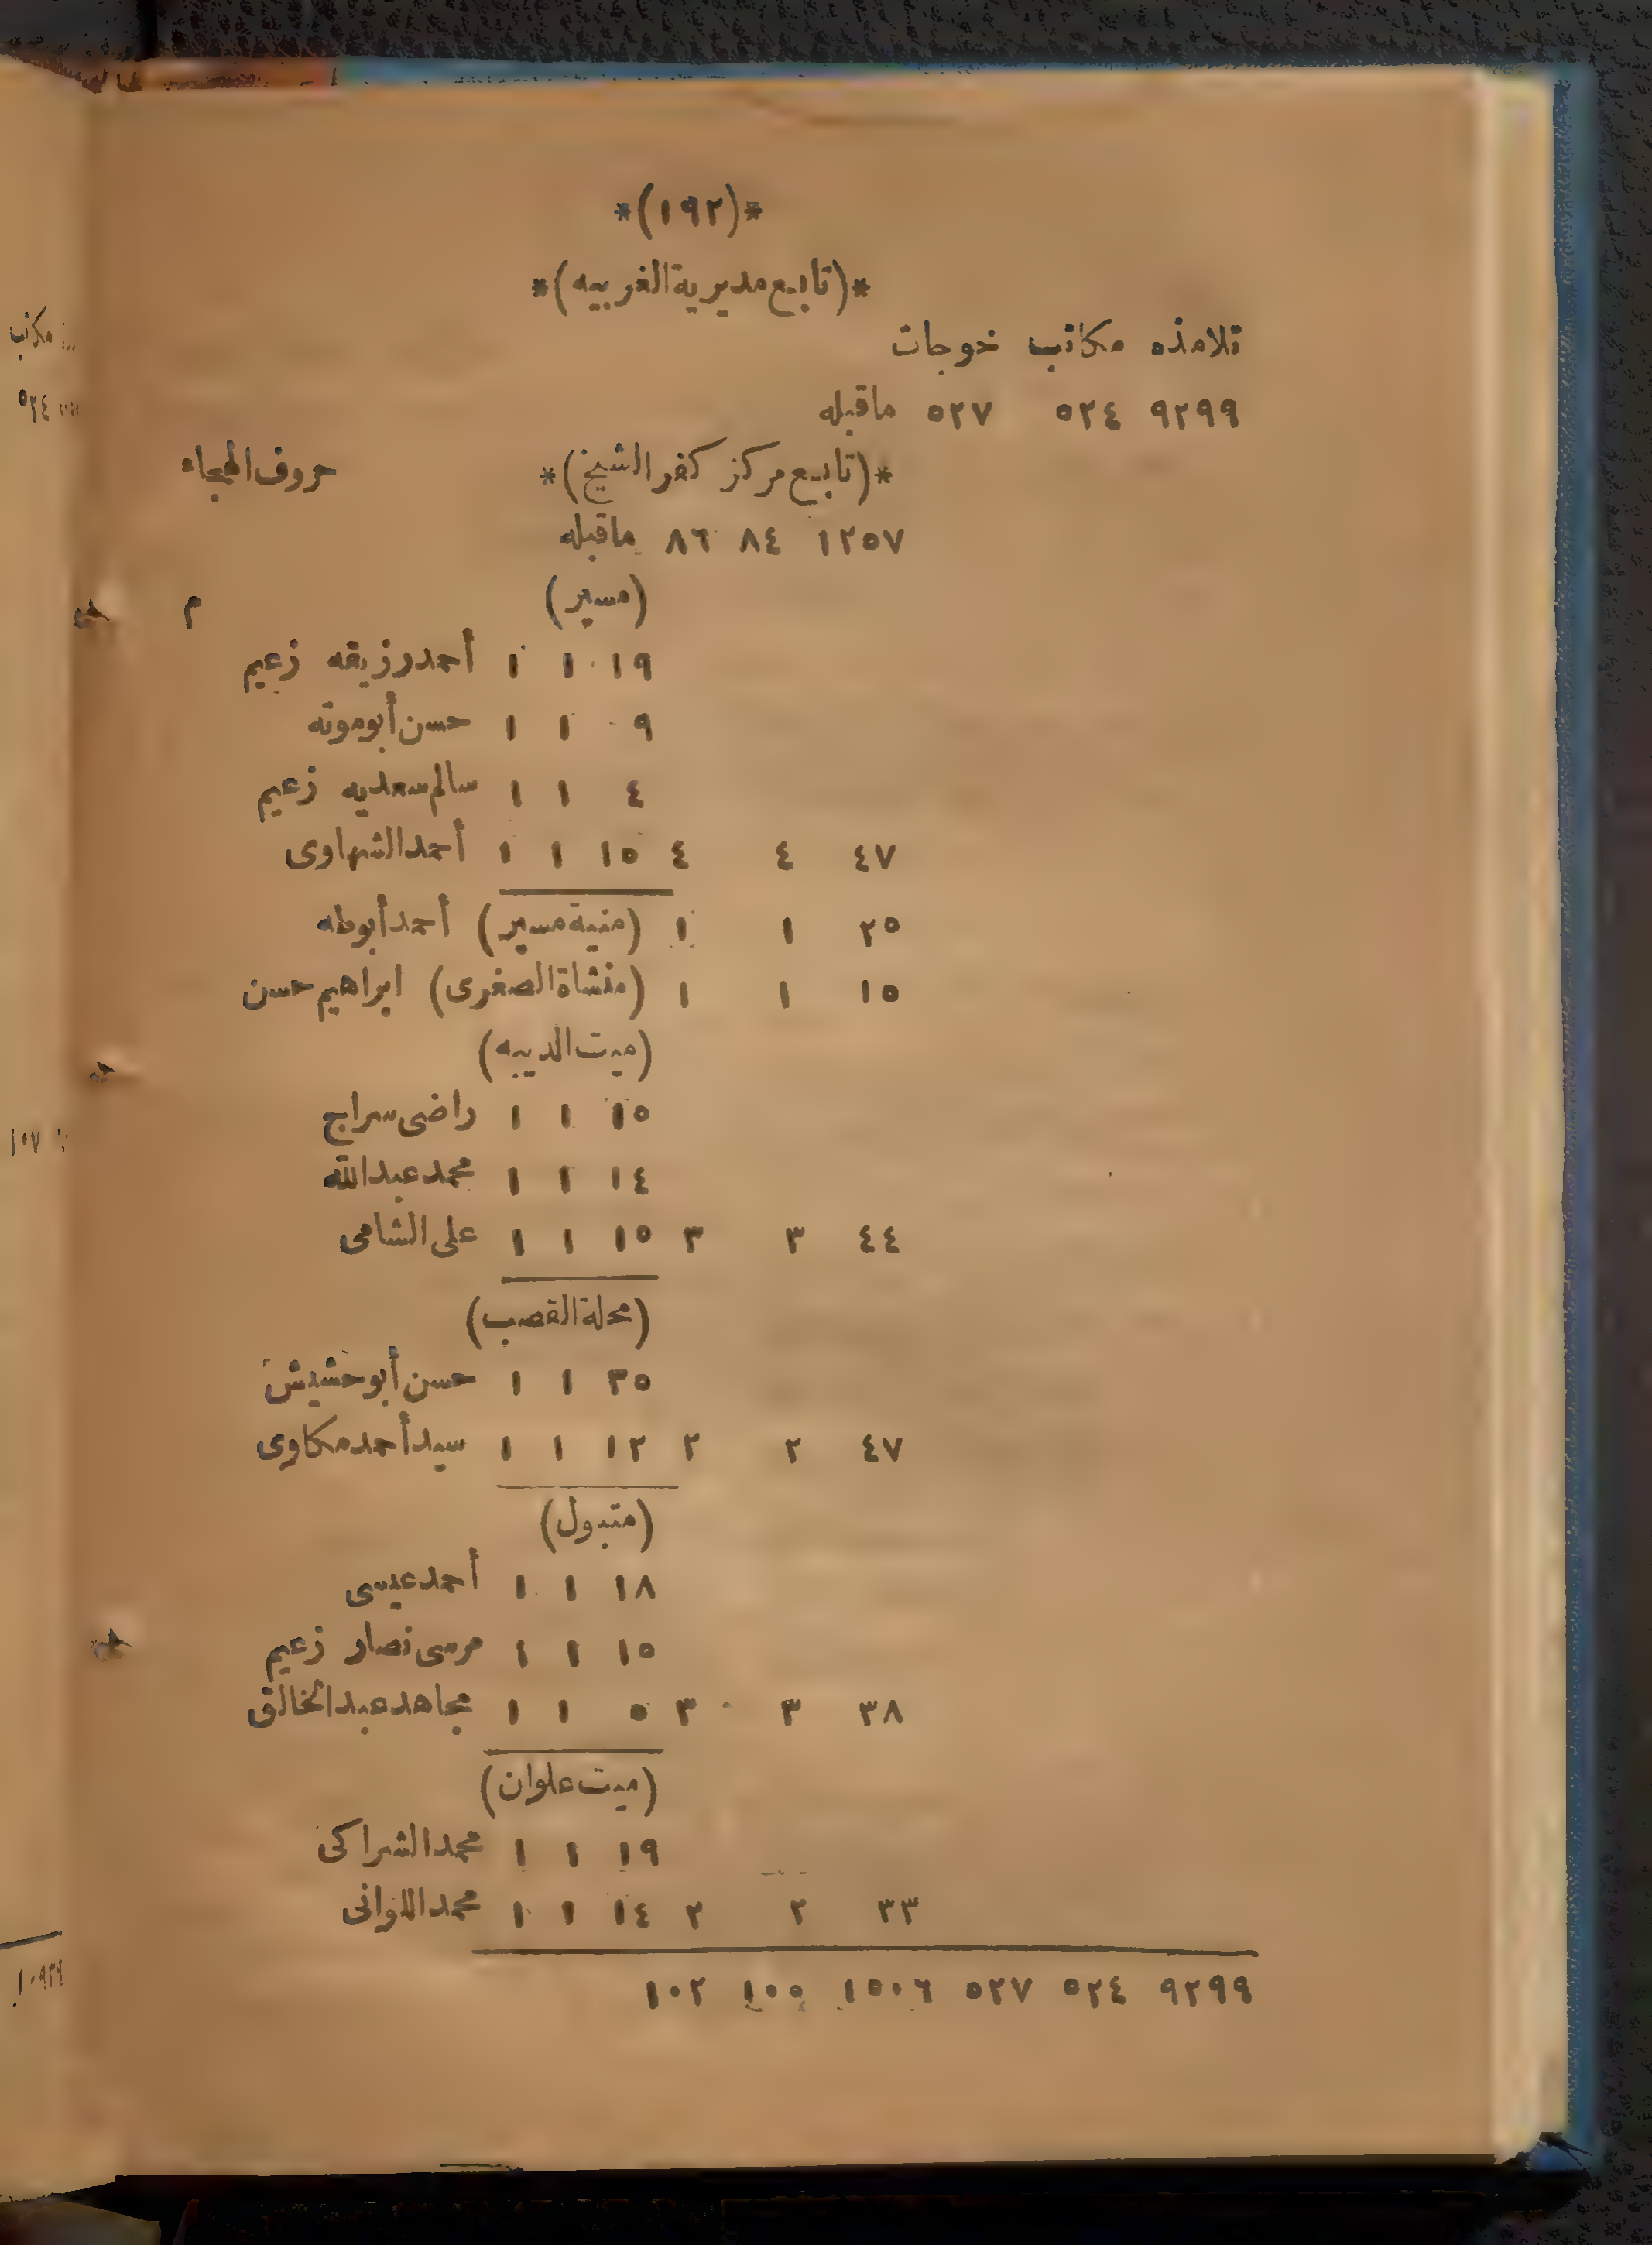 *(١٩٢)*
*(تابع مديرية الغربيه)*
تلامذه مكاتب خوجات
٩٢٩٩ ٥٢٤ ٥٢٧ ماقبله
*(تابع مركز كفر الشيخ)* حروف الهجاء
١٢٥٧ ٨٤ ٨٦ ماقبله
(مسير) م
١٩ ١ ١ أحمد رزيقه زعيم
٩ ١ ١ حسن أبوموته
٤ ١ ١ سالم سعديه زعيم
٤٧ ٤ ٤ ١٥ ١ ١ أحمد الشهاوى
٢٥ ١ ١ (منية مسير) أحمد أبوطه
١٥ ١ ١ (منشاة الصغرى) ابراهيم حسن
(ميت الديبه)
١٥ ١ ١ راضى سراج
١٤ ١ ١ محمد عبد الله
٤٤ ٣ ٣ ١٥ ١ ١ على الشامى
(محلة القصب)
٣٥ ١ ١ حسن أبوحشيش
٤٧ ٢ ٢ ١٢ ١ ١ سيد أحمد مكاوى
(متبول)
١٨ ١ ١ أحمد عيسى
١٥ ١ ١ مرسى نصار زعيم
٣٨ ٣ ٣ ٥ ١ ١ مجاهد عبد الخالق
(ميت علوان)
١٩ ١ ١ محمد الشراكى
٣٣ ٢ ٢ ١٤ ١ ١ محمد اللوانى
٩٢٩٩ ٥٢٤ ٥٢٧ ١٥٠٦ ١٠٠ ١٠٢